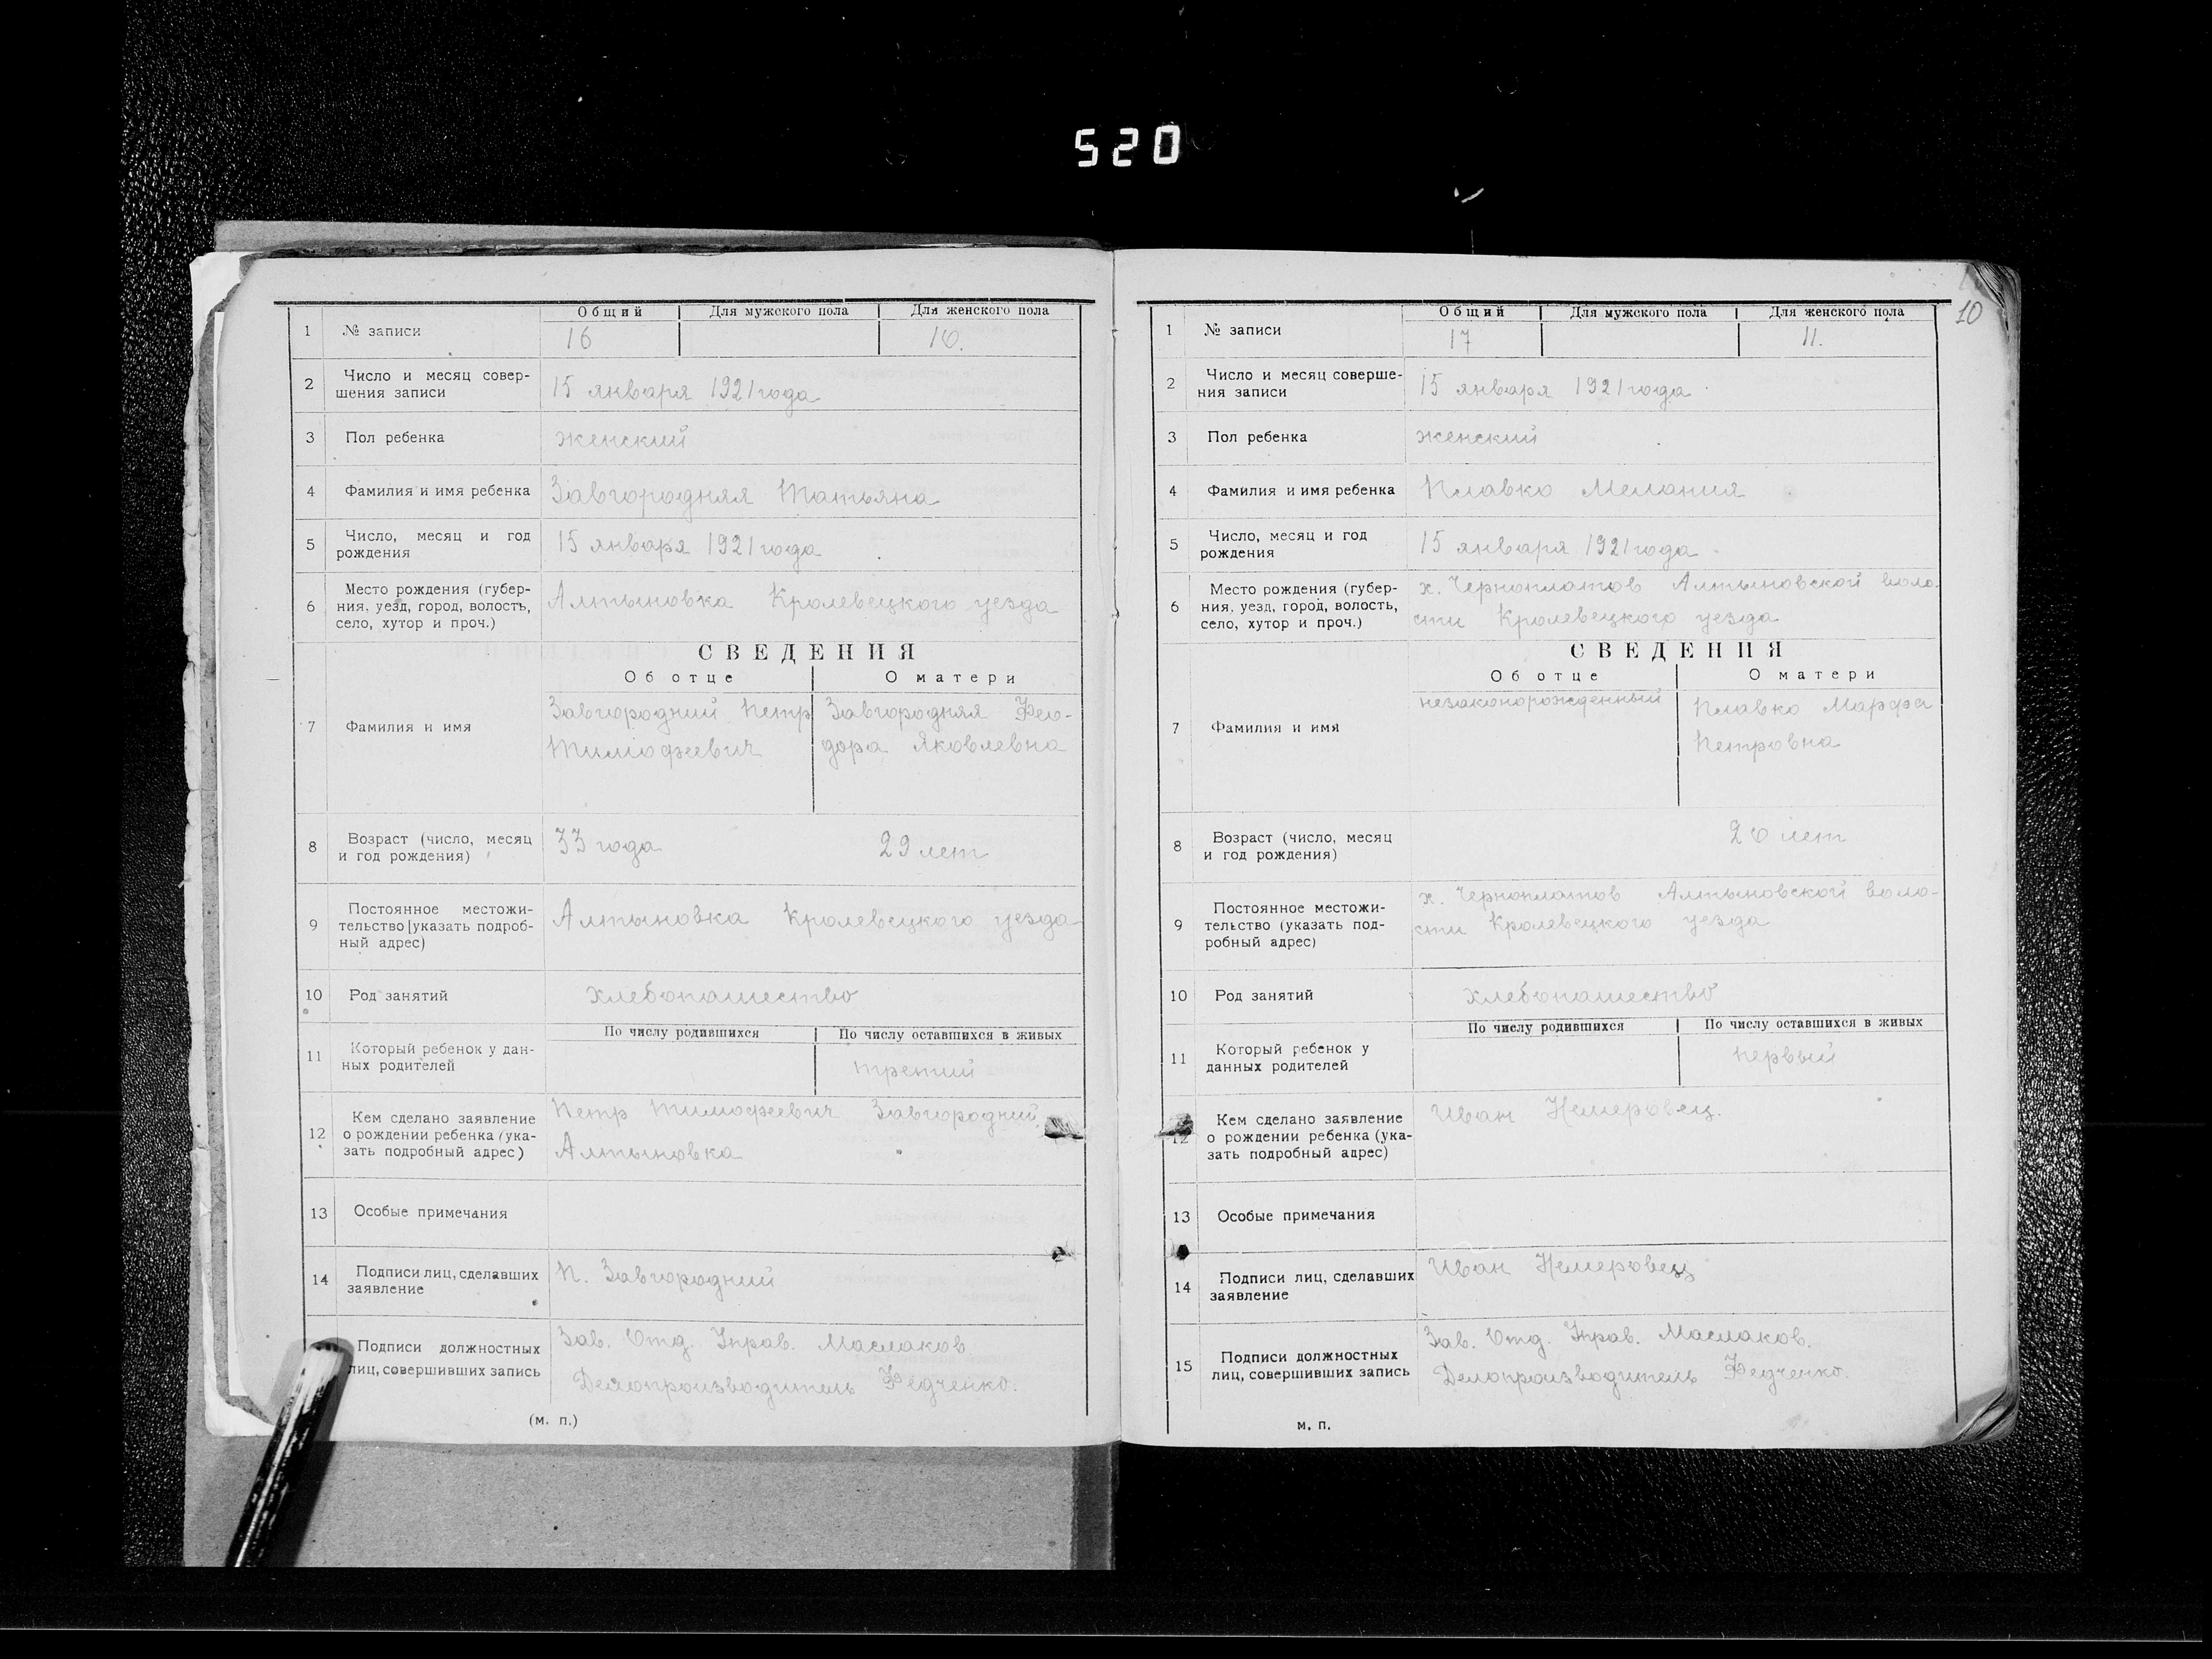 520
Общий Для мужского пола Для женского пола
1 № записи 16 10.
2 Число и месяц совер-
шения записи 15 января 1921 года
3 Пол ребенка женский
4 Фамилия и имя ребенка Завгородняя Татьяна
5 Число, месяц и год
рождения 15 января 1921 года
6 Место рождения (губер-
ния, уезд, город, волость,
село, хутор и проч.) Алтыновка Кролевецкого уезда
СВЕДЕНИЯ
Об отце О матери
7 Фамилия и имя
Завгородний Петр
Тимофеевич
Завгородняя Фео-
дора Яковлевна
8 Возраст (число, месяц
и год рождения) 33 года 29 лет
9 Постоянное местожи-
тельство [указать подроб-
ный адрес) Алтыновка Кролевецкого уезда
10 Род занятий хлебопашество
По числу родившихся По числу оставшихся в живых
11 Который ребенок у дан-
ных родителей третий
12 Кем сделано заявление
о рождении ребенка (ука-
зать подробный адрес)
Петр Тимофеевич Завгородний
Алтыновка
13 Особые примечания
14 Подписи лиц, сделавших
заявление П. Завгородний
Подписи должностных
лиц, совершивших запись
Зав. Отд. Управ. Маслаков.
Делопроизводитель Федченко.
(м. п.)
10
Общий Для мужского пола Для женского пола
1 № записи 17 11.
2 Число и месяц соверше-
ния записи 15 января 1921 года
3 Пол ребенка женский
4 Фамилия и имя ребенка Плавко Мелания
5 Число, месяц и год
рождения 15 января 1921 года
6 Место рождения (губер-
ния, уезд, город, волость,
село, хутор и проч.)
х. Черноплатов Алтыновской воло-
сти Кролевецкого уезда
СВЕДЕНИЯ
Об отце О матери
7 Фамилия и имя
незаконорожденный
Плавко Марфа
Петровна
8 Возраст (число, месяц
и год рождения) 20 лет
9 Постоянное местожи-
тельство (указать под-
робный адрес)
х. Черноплатов Алтыновской воло-
сти Кролевецкого уезда
10 Род занятий хлебопашество
По числу родившихся По числу оставшихся в живых
11 Который ребенок у
данных родителей первый
12 Кем сделано заявление
о рождении ребенка (ука-
зать подробный адрес)
Иван Немеровец.
13 Особые примечания
14 Подписи лиц, сделавших
заявление Иван Немеровец
15 Подписи должностных
лиц, совершивших запись
Зав. Отд. Управ. Маслаков.
Делопроизводитель Федченко.
м. п.